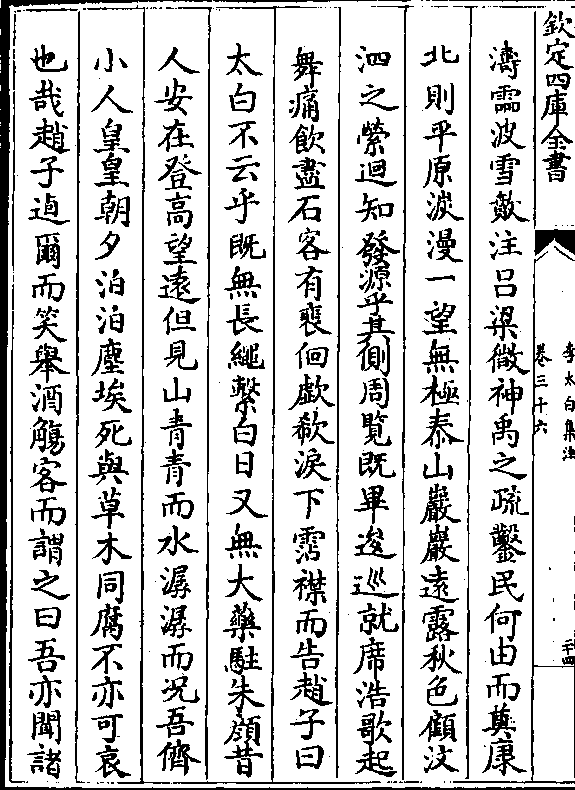 欽定四庫全書
李太白集注
卷三十六
二十四
濤霝波雪歕注呂梁微神禹之疏鑿民何由而奠康
北則平原淡漫一望無極泰山巖巖遠露秋色顧汶
泗之縈迴知發源乎其側周覽既畢逡巡就席浩歌起
舞痛飲盡石客有裵佪歔欷淚下霑襟而告趙子曰
太白不云乎既無長繩繫白日又無大藥駐朱顔昔
人安在登高望遠但見山青青而水潺潺而况吾儕
小人皇皇朝夕泊泊塵埃死與草木同腐不亦可哀
也哉趙子逌爾而笑舉酒觴客而謂之曰吾亦聞諸